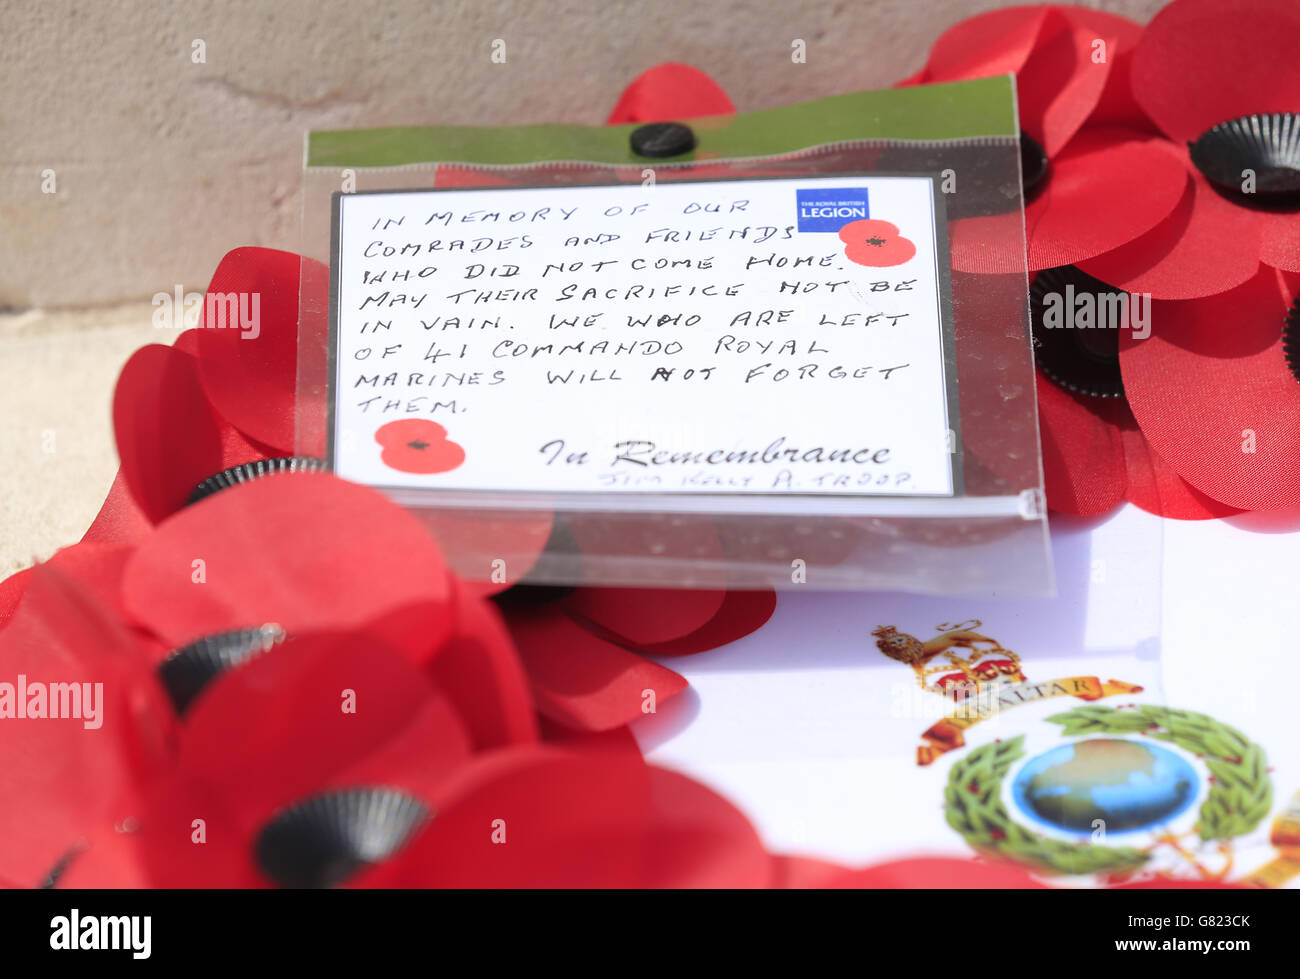 IN MEMORY OF OUR
COMRADES AND FRIENDS
WHO DID NOT COME HOME.
MAY THEIR SACRIFICE NOT BE
IN VAIN. WE WHO ARE LEFT
OF 41 COMMANDO ROYAL
MARINES WILL NOT FORGET
THEM.
THE ROYAL BRITISH
LEGION
In Remembrance
JIM KELLY A. TROOP.
alamy
alamy
Image ID: G823CK
www.alamy.com